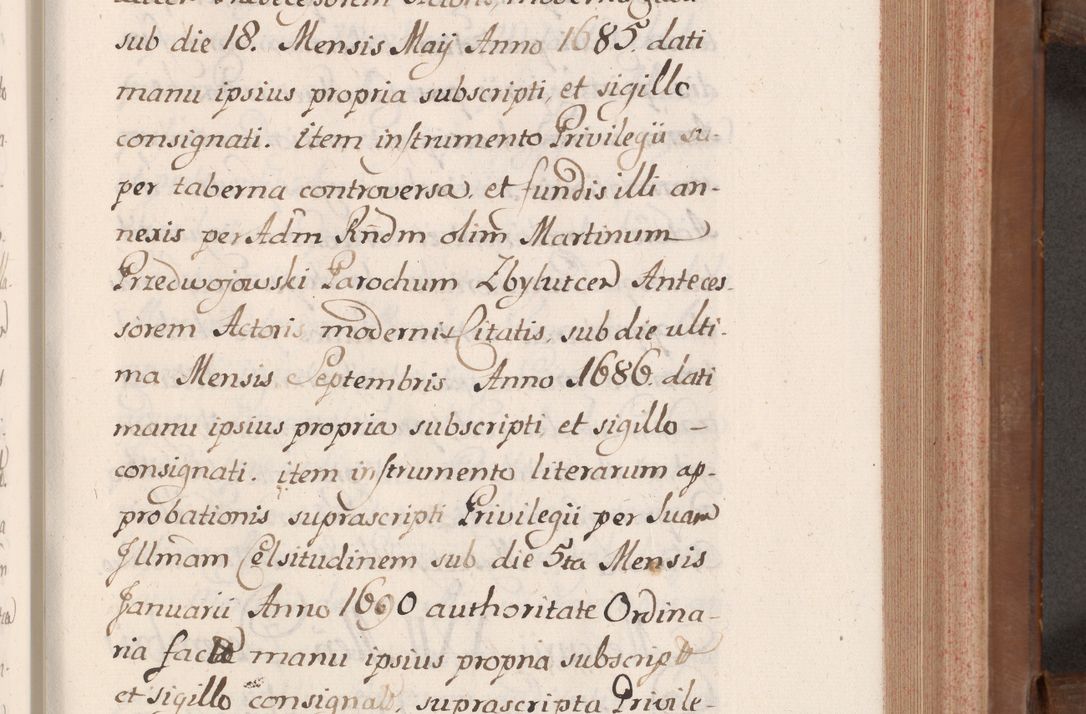 sub die 18. Mensis Maij Anno 1685. dati
manu ipsius propria subscripti, et sigillo
consignati. Item instrumento Privilegii su-
per taberna controversa, et fundis illi an-
nexis per Adm̄ Rn̄dm olim̄ Martinum
Przedwojowski Parochum Zbylutcen Anteces-
sorem Actoris, moderni Citatis, sub die ulti-
ma Mensis Septembris Anno 1686. dati
manu ipsius propria subscripti, et sigillo -
consignati. item instrumento literarum ap-
probationis suprascripti Privilegii per Suam
Jllmam Celsitudinem sub die 5ta Mensis
Januarii Anno 1690 authoritate Ordina-
ria manu ipsius propria
et sigillo suprascripta Privile-